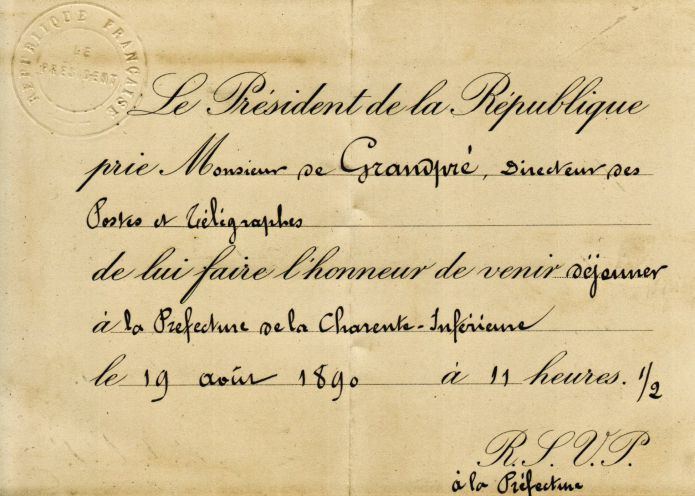 RÉPUBLIQUE FRANÇAISE
LE
PRÉSIDENT
Le Président de la République
prie Monsieur de Grandpré, Directeur des
Postes et Télégraphes
de lui faire l'honneur de venir déjeuner
à la Préfecture de la Charente-Inférieure
le 19 août 1890 à 11 heures. 1/2
R. S. V. P.
à la Préfecture